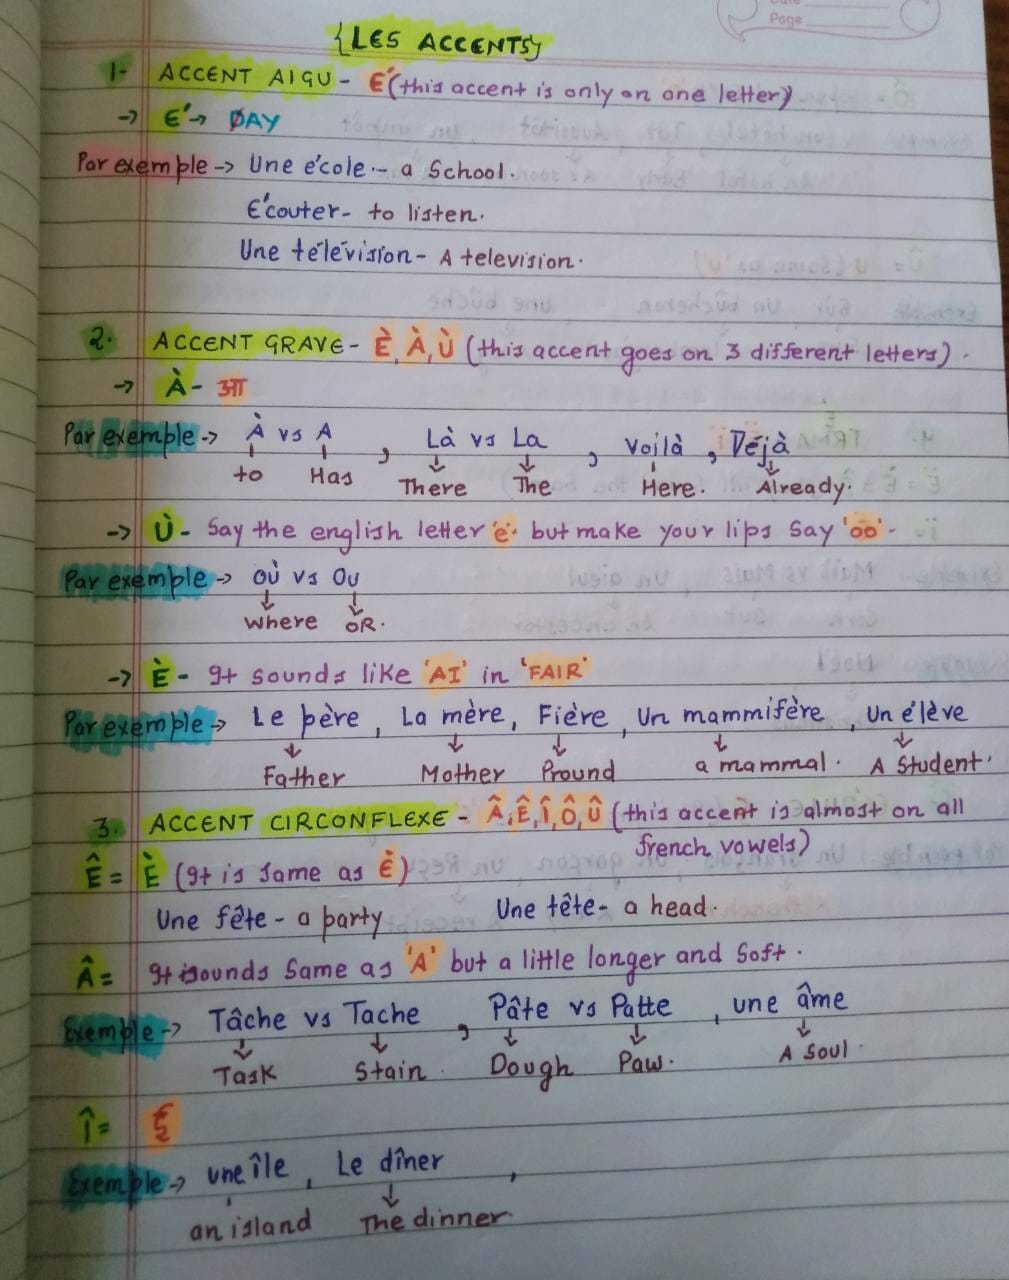 Page
{LES ACCENTS}
1- ACCENT AIGU - É (this accent is only on one letter)
→ É → DAY
Par exemple → Une école - a School.
Écouter - to listen.
Une télévision - A television.
2. ACCENT GRAVE - È, À, Ù (this accent goes on 3 different letters).
→ À - आ
Par exemple → À vs A , Là vs La , Voilà , Déjà
to Has There The Here. Already.
→ Ù - Say the english letter 'e' but make your lips say 'oo' -
Par exemple → Où vs Ou
Where OR.
→ È - It sounds like 'AI' in 'FAIR'
Par exemple → Le père , La mère, Fière, Un mammifère , Un élève
Father Mother Pround a mammal. A Student.
3. ACCENT CIRCONFLEXE - Â, Ê, Î, Ô, Û (this accent is almost on all
french vowels)
Ê = È (It is same as È)
Une fête - a party Une tête - a head.
Â = It sounds Same as 'A' but a little longer and Soft.
Exemple → Tâche vs Tache , Pâte vs Patte , une âme
Task Stain. Dough Paw. A Soul.
Î = ξ
Exemple → une île , Le dîner ,
an island The dinner.